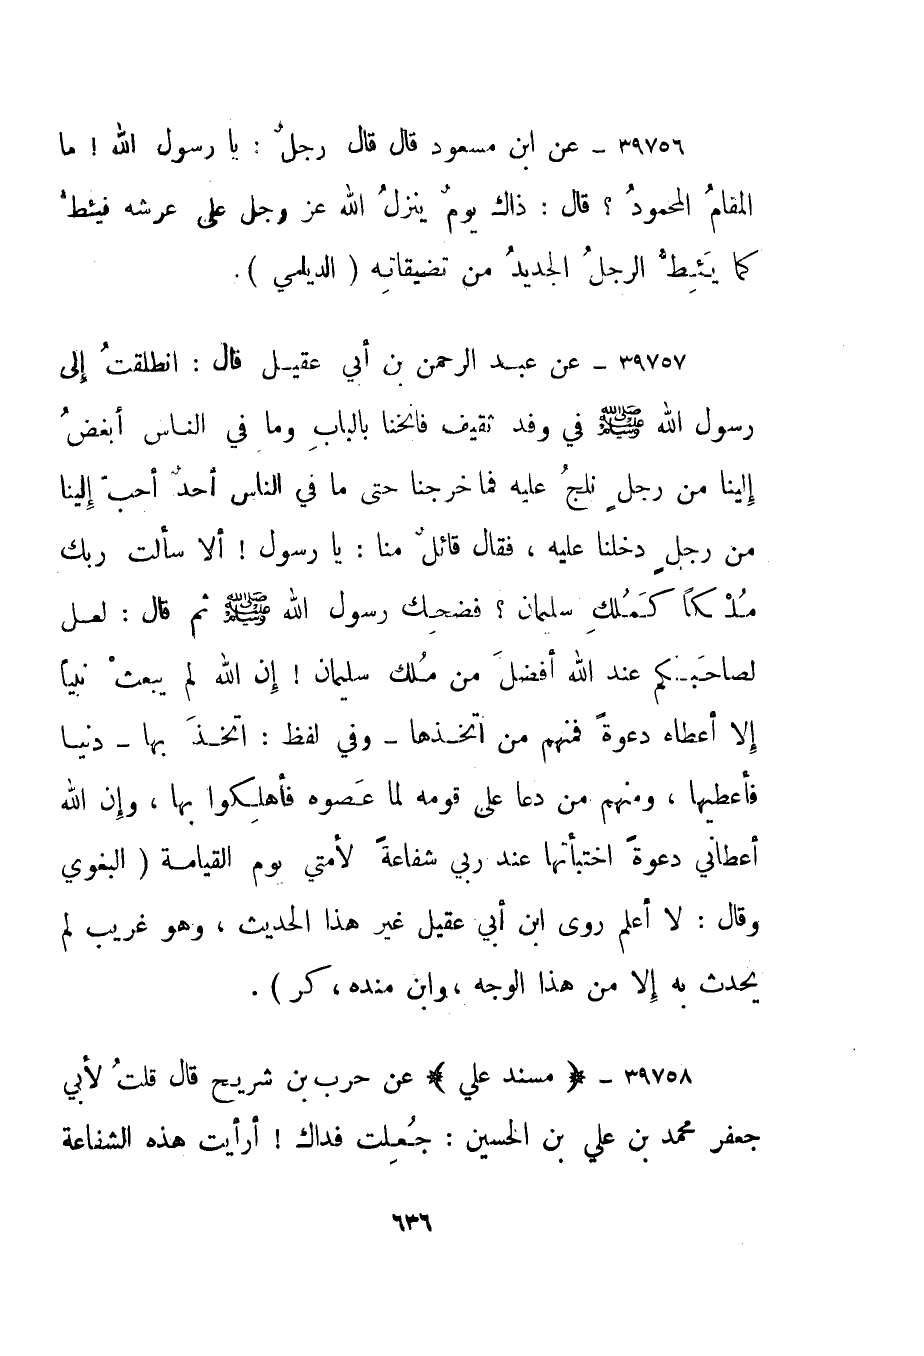 ٣٩٧٥٦ ـ عن ابن مسعود قال قال رجلٌ : يا رسول الله ! ما
المقامُ المحمودُ ؟ قال : ذاك يومٌ ينزلُ الله عز وجل على عرشه فيئطْ
كما يَئِطْ الرجلُ الجديدُ من تضيقاتِه ( الديلمي ) .
٣٩٧٥٧ ـ عن عبد الرحمن بن أبي عقيل قال : انطلقتُ إلى
رسول الله ﷺ في وفد ثقيف فانخنا بالبابِ وما في الناس أبغضُ
إلينا من رجلٍ نلجُ عليه فما خرجنا حتى ما في الناس أحدٌ أحبّ إلينا
من رجلٍ دخلنا عليه ، فقال قائلٌ منا : يا رسول ! ألا سألت ربك
مُلْكاً كَمُلكِ سليمان ؟ فضحِك رسول الله ﷺ ثم قال : لعل
لصاحبَكم عند الله أفضلَ من مُلك سليمان ! إن الله لم يبعثْ نبياً
إلا أعطاه دعوةً فمنهم من اتَّخذها ـ وفي لفظ : اتَّخذَ بها ـ دنيا
فأعطيها ، ومنهم من دعا على قومه لما عَصوه فأهلِكوا بها ، وإن الله
أعطاني دعوةً اختبأتها عند ربي شفاعةً لأمتي يوم القيامة ( البغوي
وقال : لا أعلم روى ابن أبي عقيل غير هذا الحديث ، وهو غريب لم
يحدث به إلا من هذا الوجه ، وابن منده ، كر ) .
٣٩٧٥٨ ـ ﴿ مسند علي ﴾ عن حرب بن شريح قال قلتُ لأبي
جعفر محمد بن علي بن الحسين : جُعِلت فداك ! أرأيت هذه الشفاعة
٦٣٦